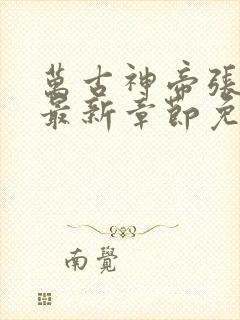 萬古神帝張
最新章節免
南覺